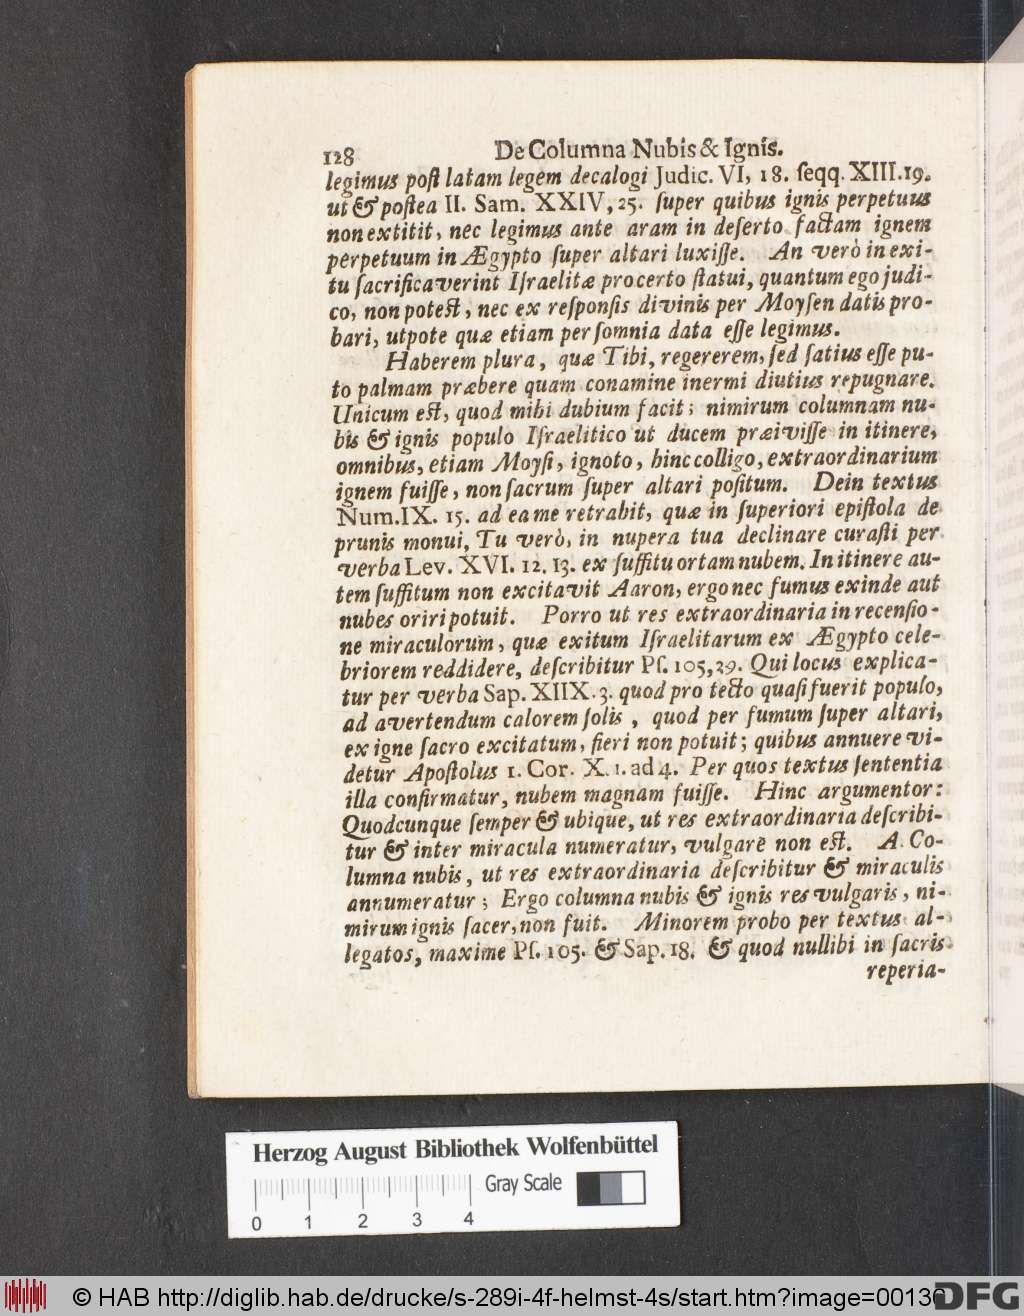 128 De Columna Nubis & Ignis.
legimus poſt latam legem decalogi Judic. VI, 18. ſeqq. XIII.19.
ut & poſtea II. Sam. XXIV, 25. ſuper quibus ignis perpetuus
non extitit, nec legimus ante aram in deſerto factam ignem
perpetuum in Ægypto ſuper altari luxiſſe. An verò in exi-
tu ſacrificaverint Iſraelitæ pro certo ſtatui, quantum ego judi-
co, non poteſt, nec ex reſponſis divinis per Moyſen datis pro-
bari, utpote quæ etiam per ſomnia data eſſe legimus.
Haberem plura, quæ Tibi, regererem, ſed ſatius eſſe pu-
to palmam præbere quam conamine inermi diutius repugnare.
Unicum eſt, quod mihi dubium facit; nimirum columnam nu-
bis & ignis populo Iſraelitico ut ducem præiviſſe in itinere,
omnibus, etiam Moyſi, ignoto, hinc colligo, extraordinarium
ignem fuiſſe, non ſacrum ſuper altari poſitum. Dein textus
Num. IX. 15. ad ea me retrahit, quæ in ſuperiori epiſtola de
prunis monui, Tu verò, in nupera tua declinare curaſti per
verba Lev. XVI. 12. 13. ex ſuffitu ortam nubem. In itinere au-
tem ſuffitum non excitavit Aaron, ergo nec fumus exinde aut
nubes oriri potuit. Porro ut res extraordinaria in recenſio-
ne miraculorum, quæ exitum Iſraelitarum ex Ægypto cele-
briorem reddidere, deſcribitur Pſ. 105, 39. Qui locus explica-
tur per verba Sap. XIIX. 3. quod pro tecto quaſi fuerit populo,
ad avertendum calorem ſolis, quod per fumum ſuper altari,
ex igne ſacro excitatum, fieri non potuit; quibus annuere vi-
detur Apoſtolus 1. Cor. X. 1. ad 4. Per quos textus ſententia
illa confirmatur, nubem magnam fuiſſe. Hinc argumentor:
Quodcunque ſemper & ubique, ut res extraordinaria deſcribi-
tur & inter miracula numeratur, vulgarē non eſt. A. Co-
lumna nubis, ut res extraordinaria deſcribitur & miraculis
annumeratur; Ergo columna nubis & ignis res vulgaris, ni-
mirum ignis ſacer, non fuit. Minorem probo per textus al-
legatos, maxime Pſ. 105. & Sap. 18. & quod nullibi in ſacris
reperia-
Herzog August Bibliothek Wolfenbüttel
Gray Scale
0 1 2 3 4
© HAB http://diglib.hab.de/drucke/s-289i-4f-helmst-4s/start.htm?image=00130
DFG